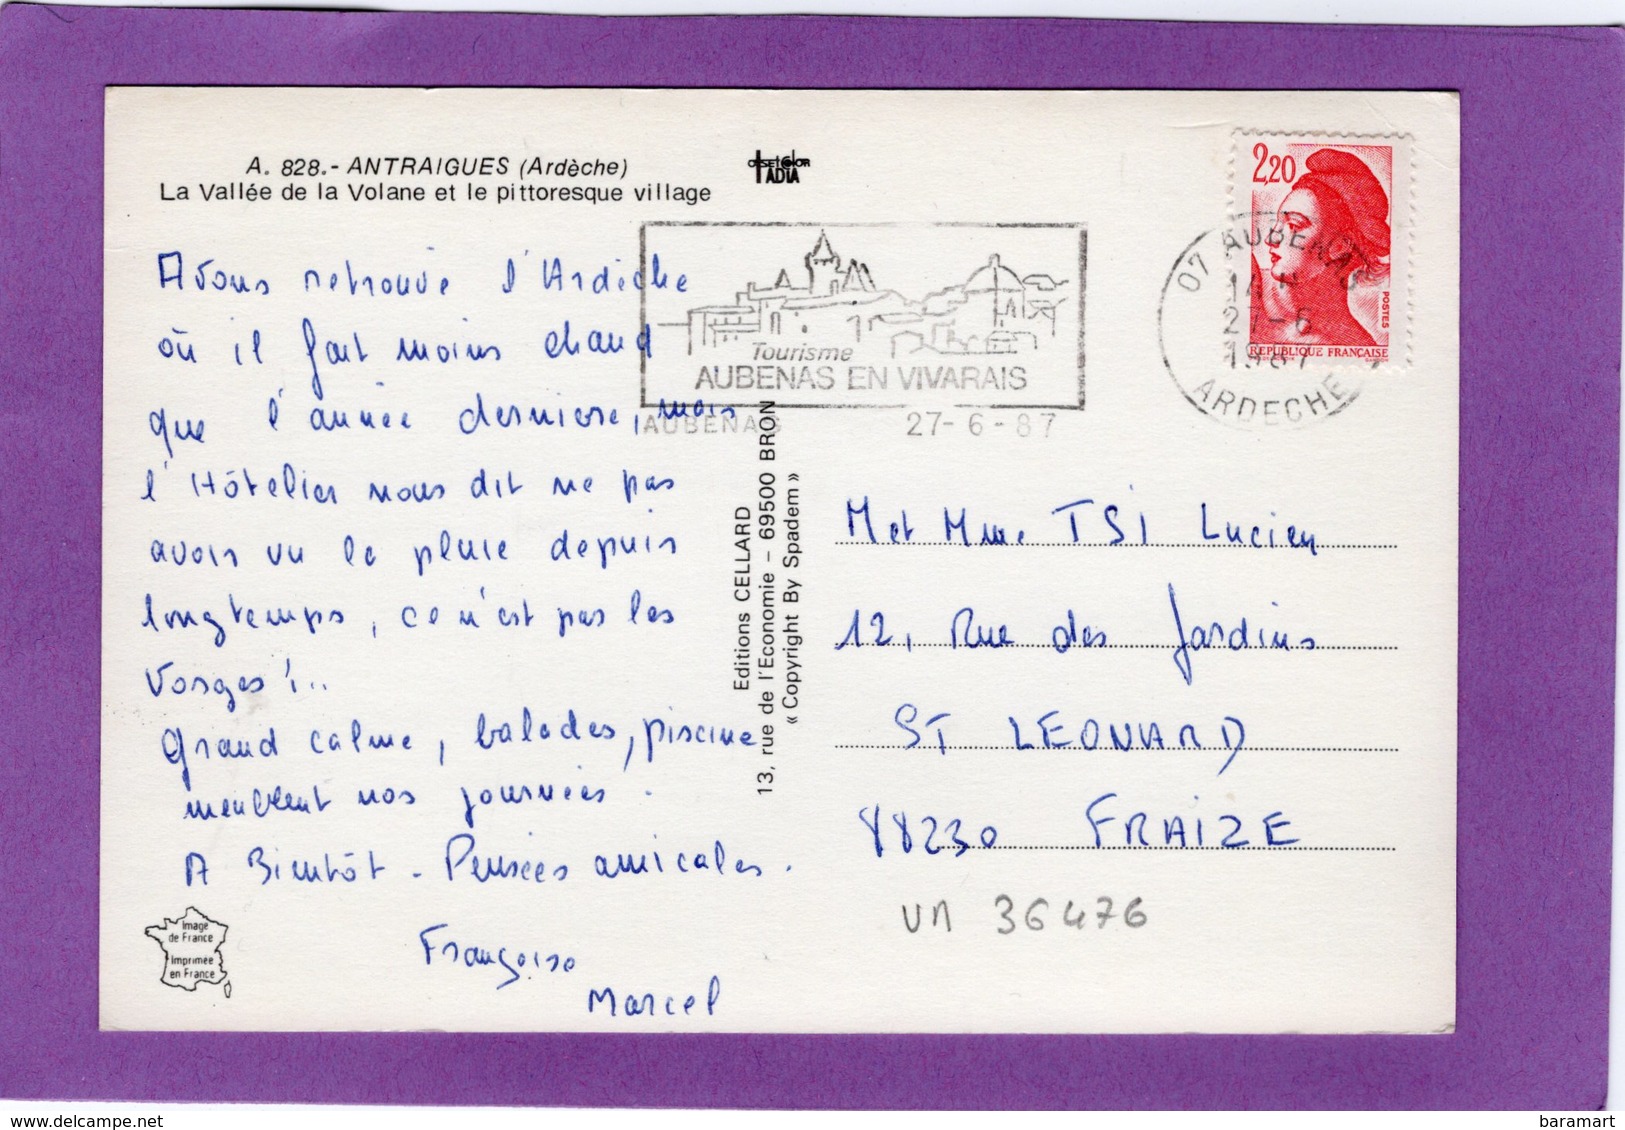 A. 828.- ANTRAIGUES (Ardèche)
La Vallée de la Volane et le pittoresque village
OFFSETCOLOR
IADIA
2,20
POSTES
REPUBLIQUE FRANÇAISE
07 AUBENAS
14 H
27-6
1987
ARDECHE
Tourisme
AUBENAS EN VIVARAIS
AUBENAS 27-6-87
Avons retrouvé l'Ardèche
où il fait moins chaud
que l'année dernière, mais
l'Hôtelier nous dit ne pas
avoir vu la pluie depuis
longtemps, ce n'est pas les
Vosges !..
Grand calme, balades, piscine
meublent nos journées.
A Bientôt - Pensées amicales.
Françoise
Marcel
Image
de France
Imprimée
en France
Editions CELLARD
13, rue de l'Economie - 69500 BRON
« Copyright By Spadem »
M et Mme TSI Lucien
12, Rue des Jardins
ST LEONARD
88230 FRAIZE
VM 36476
www.delcampe.net
baramart